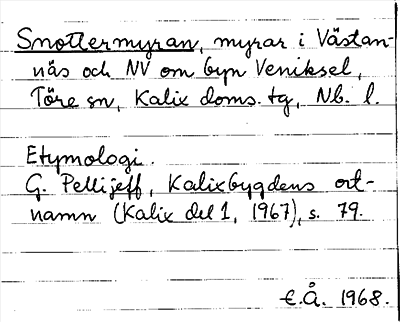 Smottermyran, myrar i Västan-
näs och NV om byn Veniksel,
Töre sn, Kalix doms. tg, Nb. l.
Etymologi.
G. Pellijeff, Kalixbygdens ort-
namn (Kalix del 1, 1967), s. 79.
E.Å. 1968.